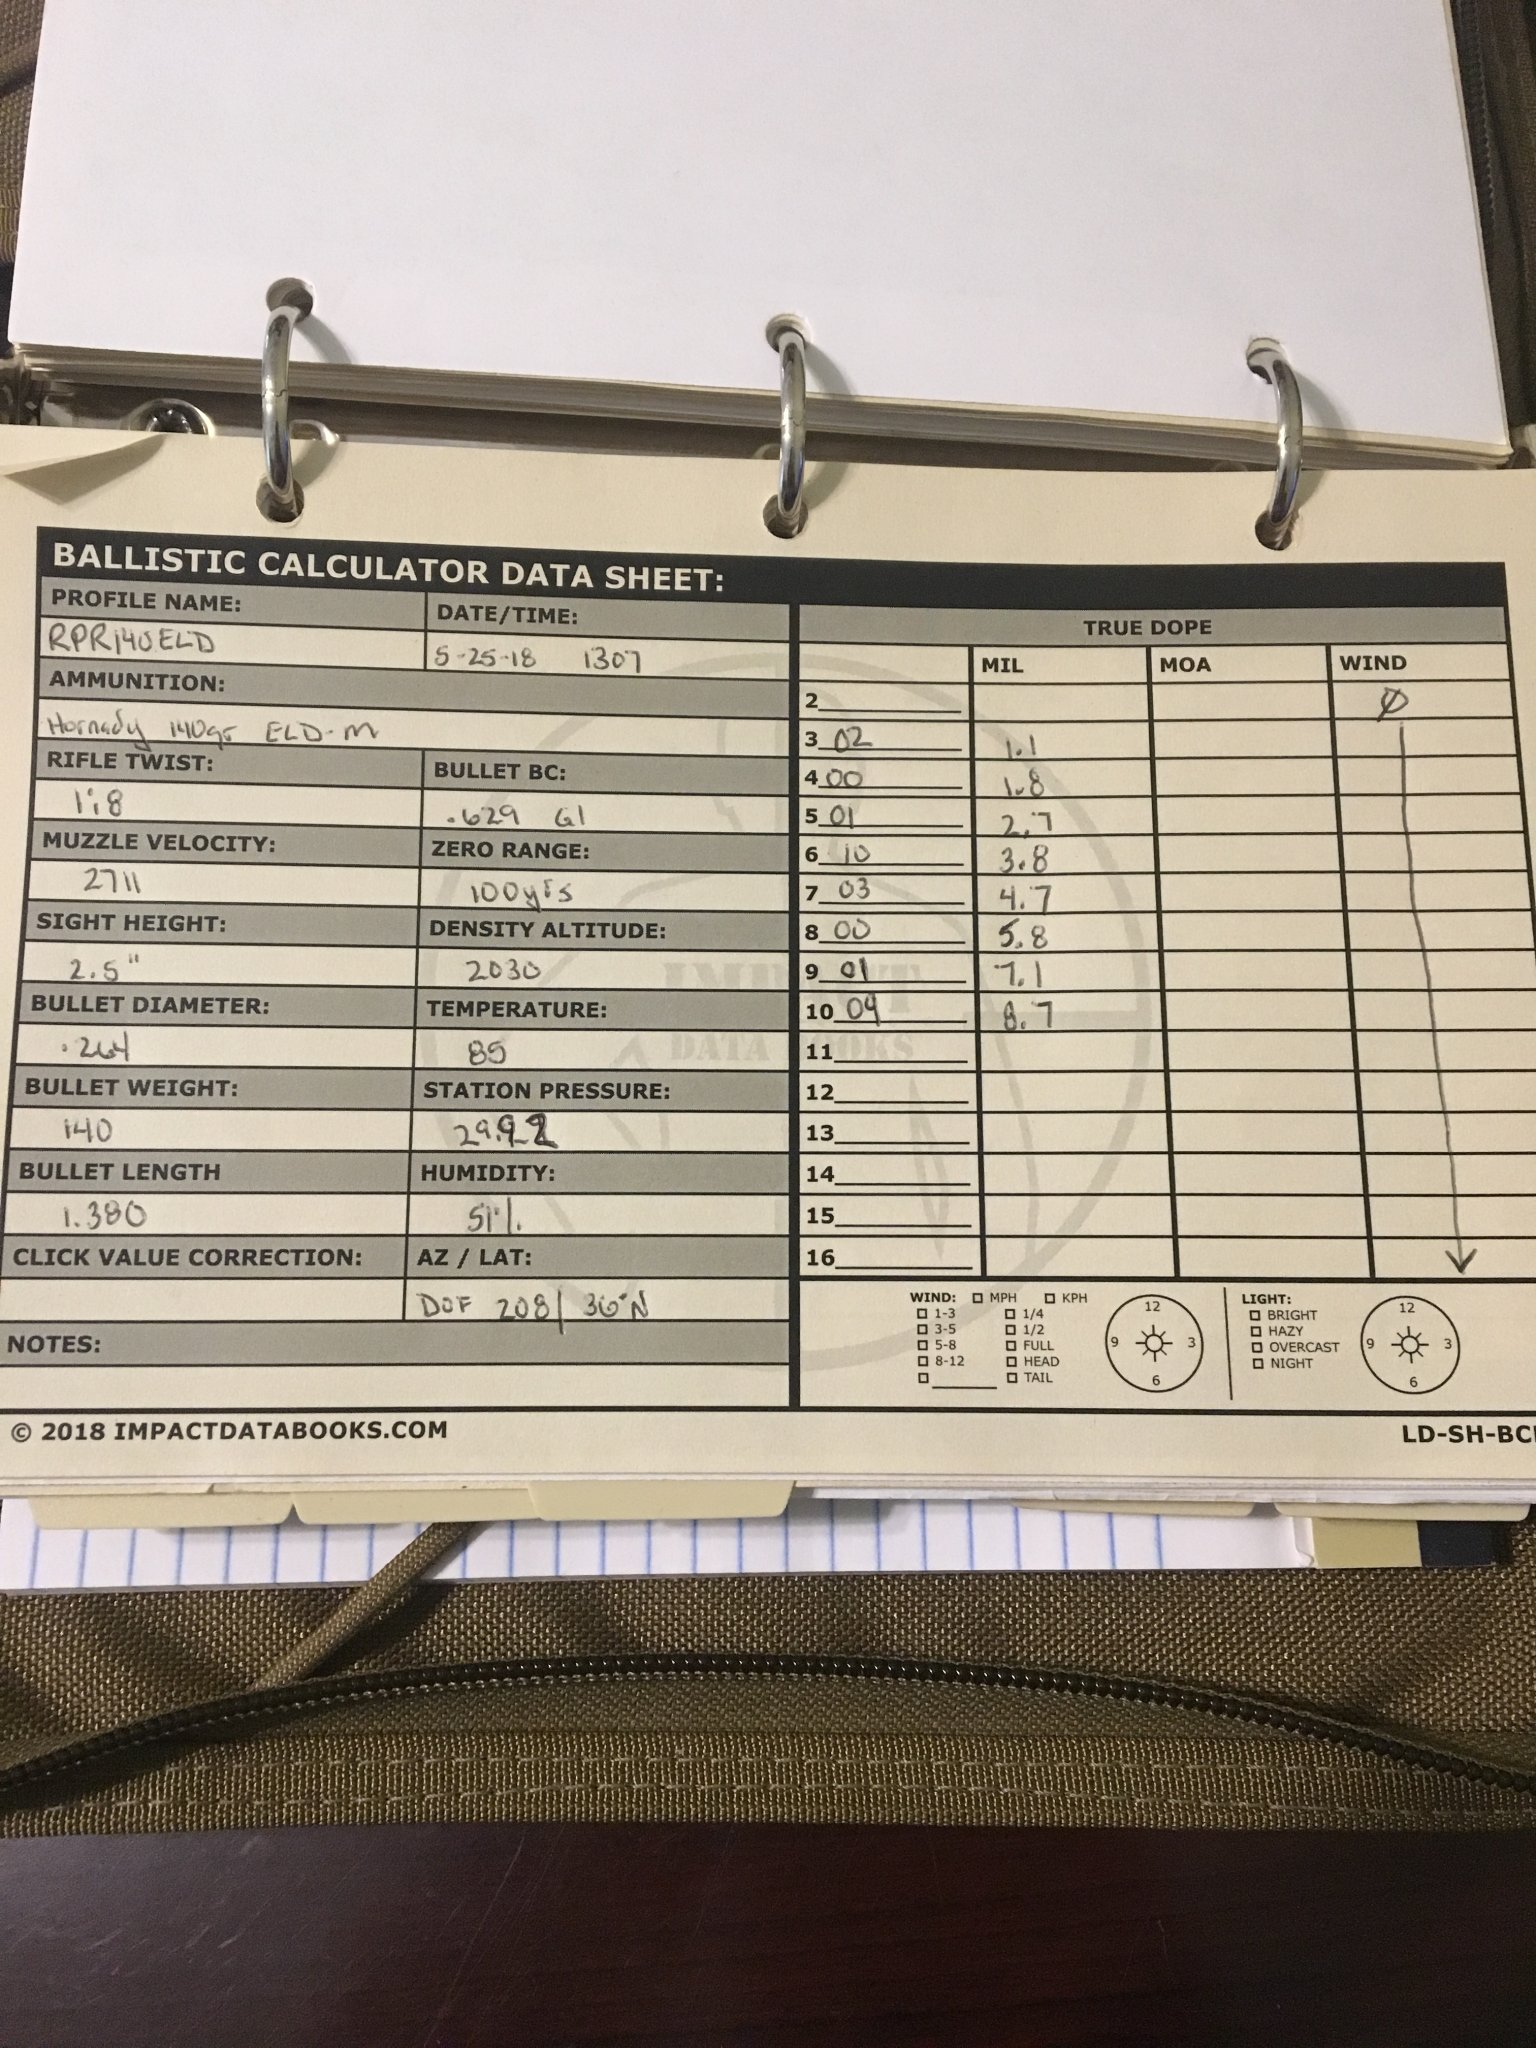 BALLISTIC CALCULATOR DATA SHEET:
PROFILE NAME: DATE/TIME:
RPR140ELD 5-25-18 1307
AMMUNITION:
Hornady 140gr ELD-M
RIFLE TWIST: BULLET BC:
1:8 .629 G1
MUZZLE VELOCITY: ZERO RANGE:
2711 100yrs
SIGHT HEIGHT: DENSITY ALTITUDE:
2.5" 2030
BULLET DIAMETER: TEMPERATURE:
.264 85
BULLET WEIGHT: STATION PRESSURE:
140 29.92
BULLET LENGTH HUMIDITY:
1.380 51%
CLICK VALUE CORRECTION: AZ / LAT:
DOF 208/ 36°N
NOTES:
TRUE DOPE
MIL MOA WIND
2 Ø
3 02 1.1
4 00 1.8
5 01 2.7
6 10 3.8
7 03 4.7
8 00 5.8
9 01 7.1
10 04 8.7
11
12
13
14
15
16
IMPACT
DATA BOOKS
WIND: MPH KPH
1-3 1/4
3-5 1/2
5-8 FULL
8-12 HEAD
TAIL
12
9 3
6
LIGHT:
BRIGHT
HAZY
OVERCAST
NIGHT
12
9 3
6
© 2018 IMPACTDATABOOKS.COM LD-SH-BC